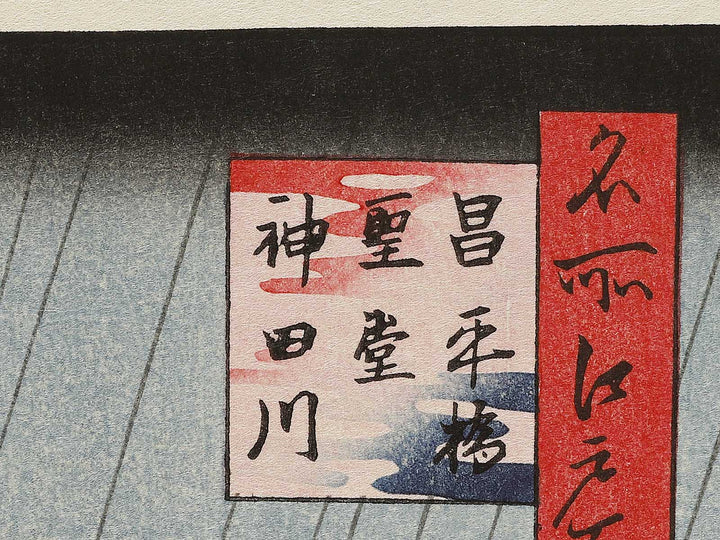 名所江戸
昌平橋
聖堂
神田川